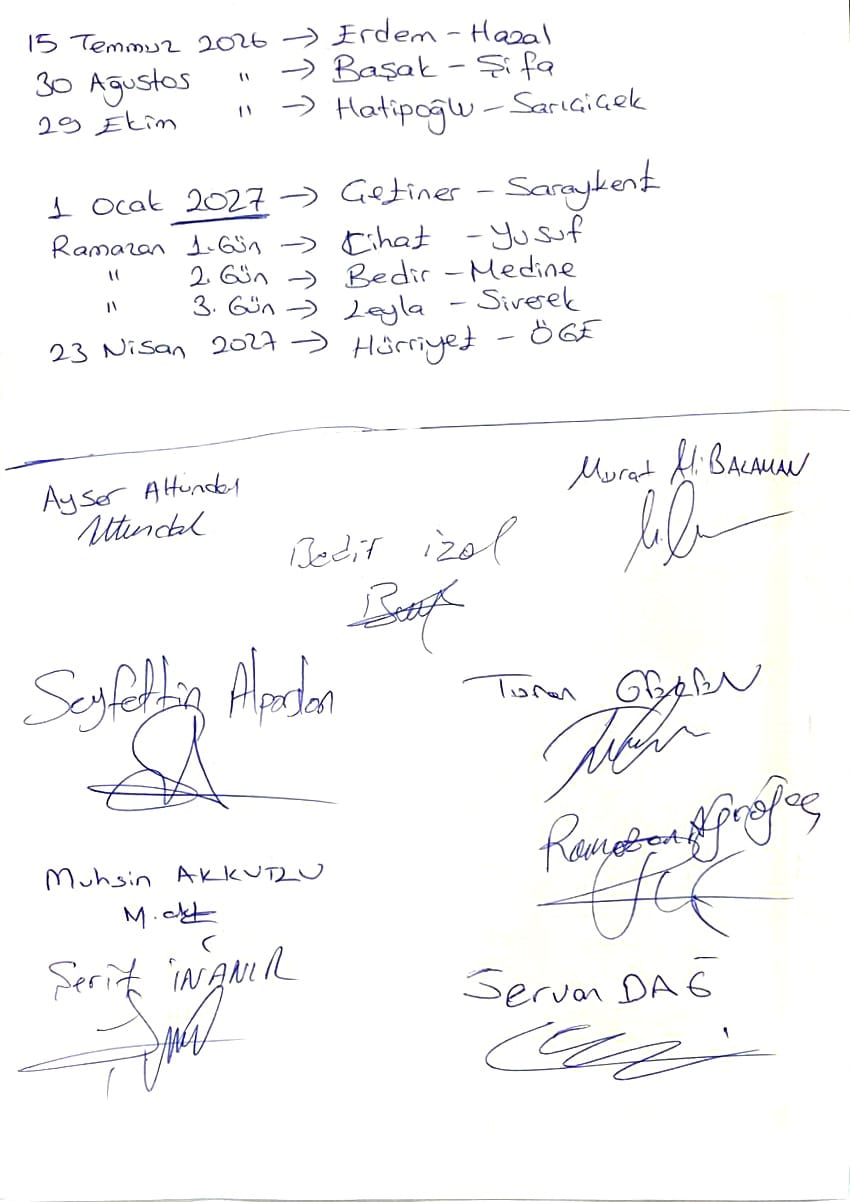 15 Temmuz 2026 → Erdem - Hazal
30 Ağustos " → Başak - Şifa
29 Ekim " → Hatipoğlu - Sarıçiçek
1 Ocak 2027 → Çetiner - Saraykent
Ramazan 1. Gün → Cihat - Yusuf
" 2. Gün → Bedir - Medine
" 3. Gün → Leyla - Siverek
23 Nisan 2027 → Hürriyet - ÖGE
Murat H. BALAMAN
Aysər Altundal
Bedir izol
Seyfettin Alpaslan
Turan
Ramazan
Muhsin AKKUZU
M.
Şerif İNANIR
Servan DAĞ